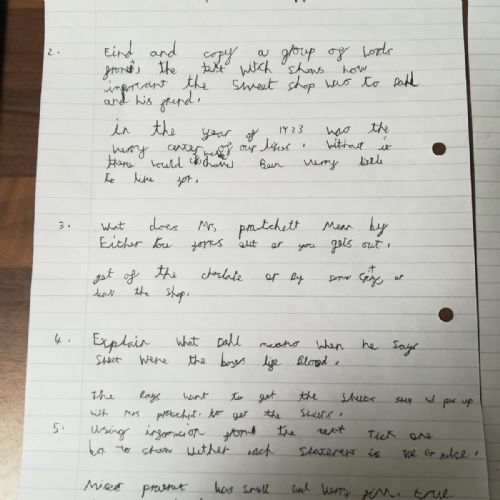 2. Find and copy a group of words
from the text witch shows how
importent the Sweet shop was to Dahl
and his friend.
in the year of 1923 was the
verry center of our lives. Without it
there would have Been verry little
to live for.
3. What does Mrs pratchett Mean by
Either You forks out or you gets out.
get of the choclate or By some , or
the Shop.
4. Explain what Dahl means when he says
Sweet Were the boys life Blood.
The Boys want to get the Sweets put up
with Mrs pratchet to get the Sweets.
5. Using the text Tick one
box to show wether each statement is or
Was small and verry true